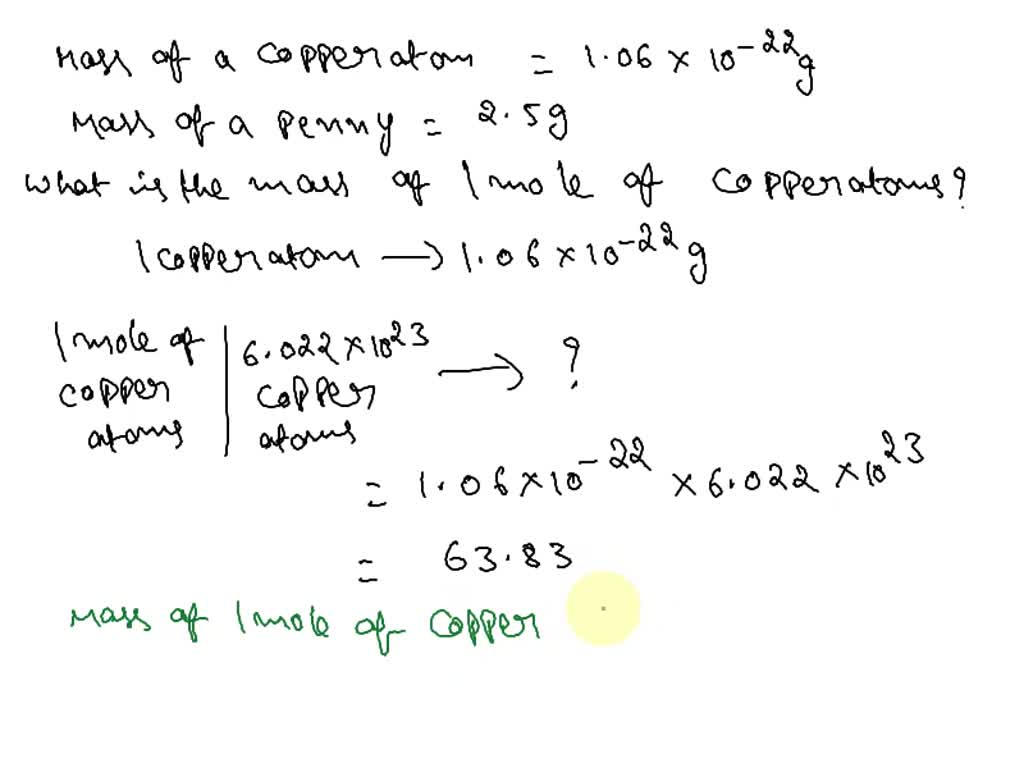 Mass of a copper atom = 1.06 × 10⁻²²g
Mass of a penny = 2.5g
What is the mass of 1 mole of copper atoms?
1 copper atom → 1.06 × 10⁻²² g
1 mole of copper atoms | 6.022 × 10²³ copper atoms → ?
= 1.06 × 10⁻²² × 6.022 × 10²³
= 63.83
Mass of 1 mole of copper